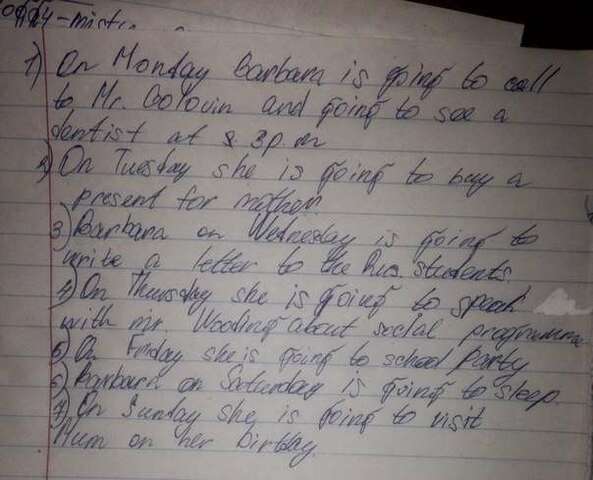 1) On Monday Barbara is going to call
to Mr. Golovin and going to see a
dentist at 3 p.m
2) On Tuesday she is going to buy a
present for mother.
3) Barbara on Wednesday is going to
write a letter to the Rus. students.
4) On Thursday she is going to speak
with mr. Wooding about social programme
5) On Friday she is going to school party
6) Barbara on Saturday is going to sleep.
7) On Sunday she is going to visit
Mum on her birtday.